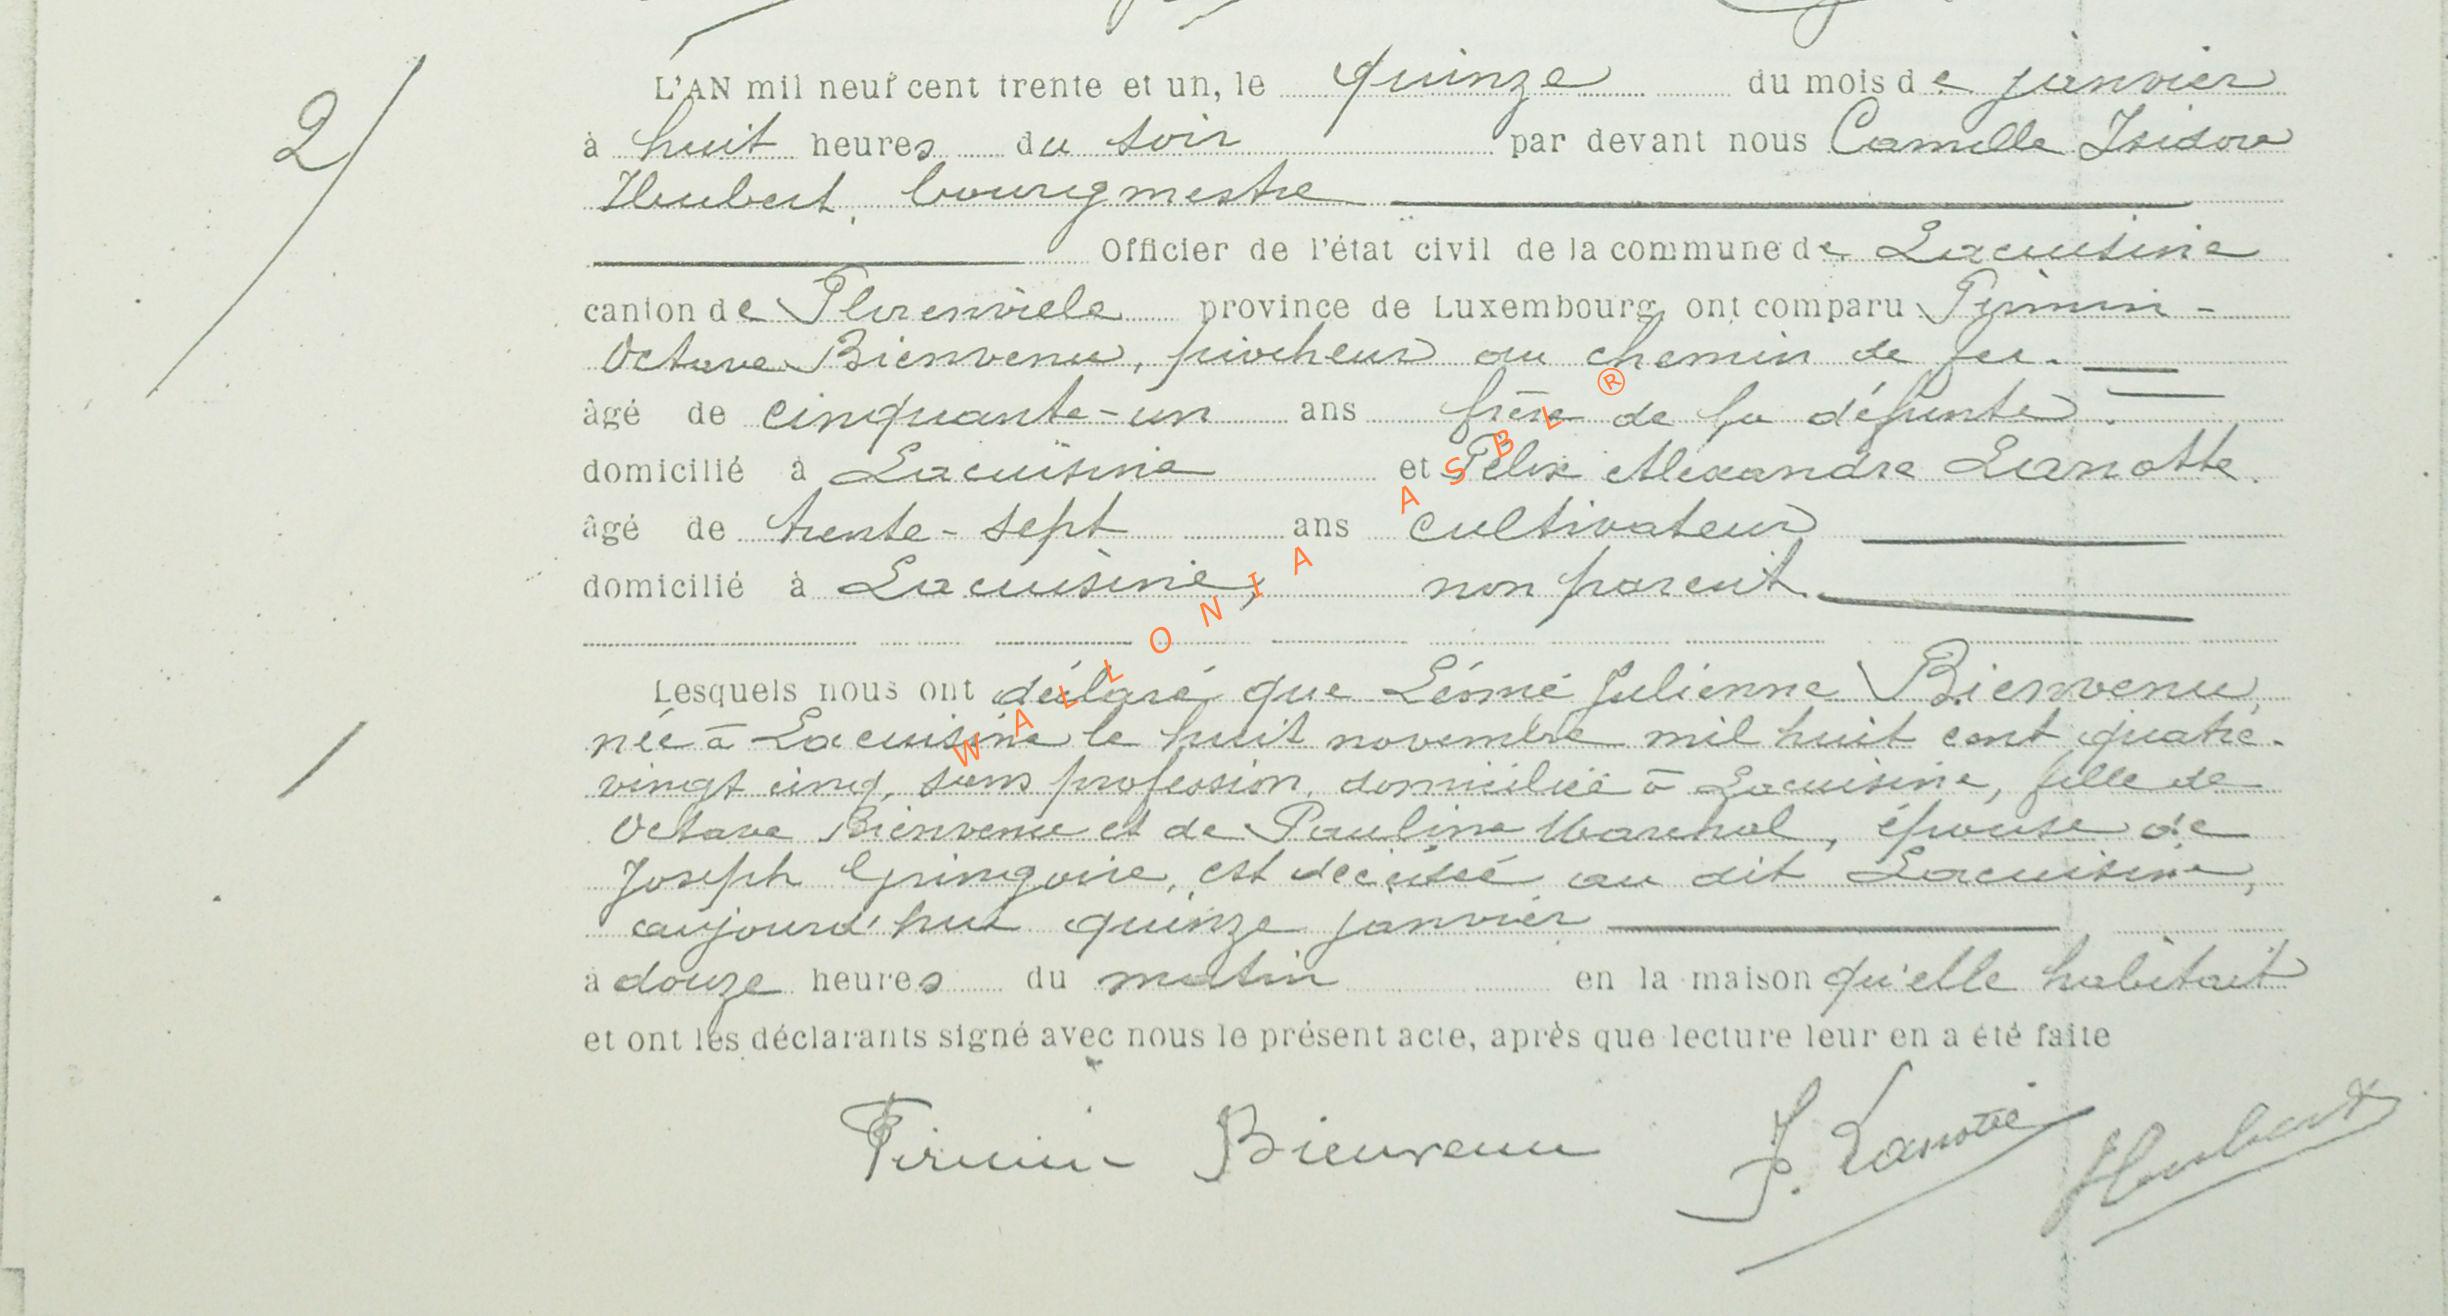 2/
L'AN mil neuf cent trente et un, le quinze du mois de janvier
à huit heures du soir par devant nous Camille Isidore
Hubert, bourgmestre
Officier de l'état civil de la commune de Lacuisine
canton de Florenville province de Luxembourg, ont comparu Firmin-
Octave Bienvenu, piocheur au chemin de fer.
âgé de cinquante-un ans frère de la défunte.
domicilié à Lacuisine et Félix Alexandre Lanotte
âgé de trente-sept ans cultivateur
domicilié à Lacuisine, non parent.
Lesquels nous ont déclaré que Léonie Julienne Bienvenu,
née à Lacuisine le huit novembre mil huit cent quatre-
vingt cinq, sans profession, domiciliée à Lacuisine, fille de
Octave Bienvenu et de Pauline Marchal, épouse de
Joseph Gringoire, est décédée au dit Lacuisine,
aujourd'hui quinze janvier
à douze heures du matin en la maison qu'elle habitait
et ont les déclarants signé avec nous le présent acte, après que lecture leur en a été faite
Firmin Bienvenu F. Lanotte Hubert
WALLONIA ASBL ®